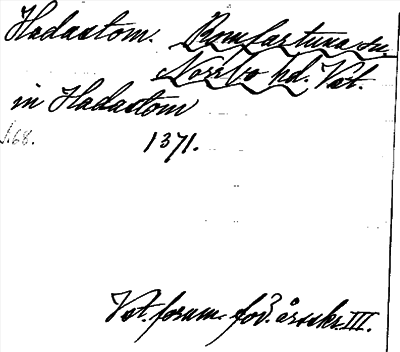 Hadastom. Romfartuna sn.
Norrbo hd. Vst.
in Hadastom
1371.
J.68.
Vst. fornm. för. årsskr. III.